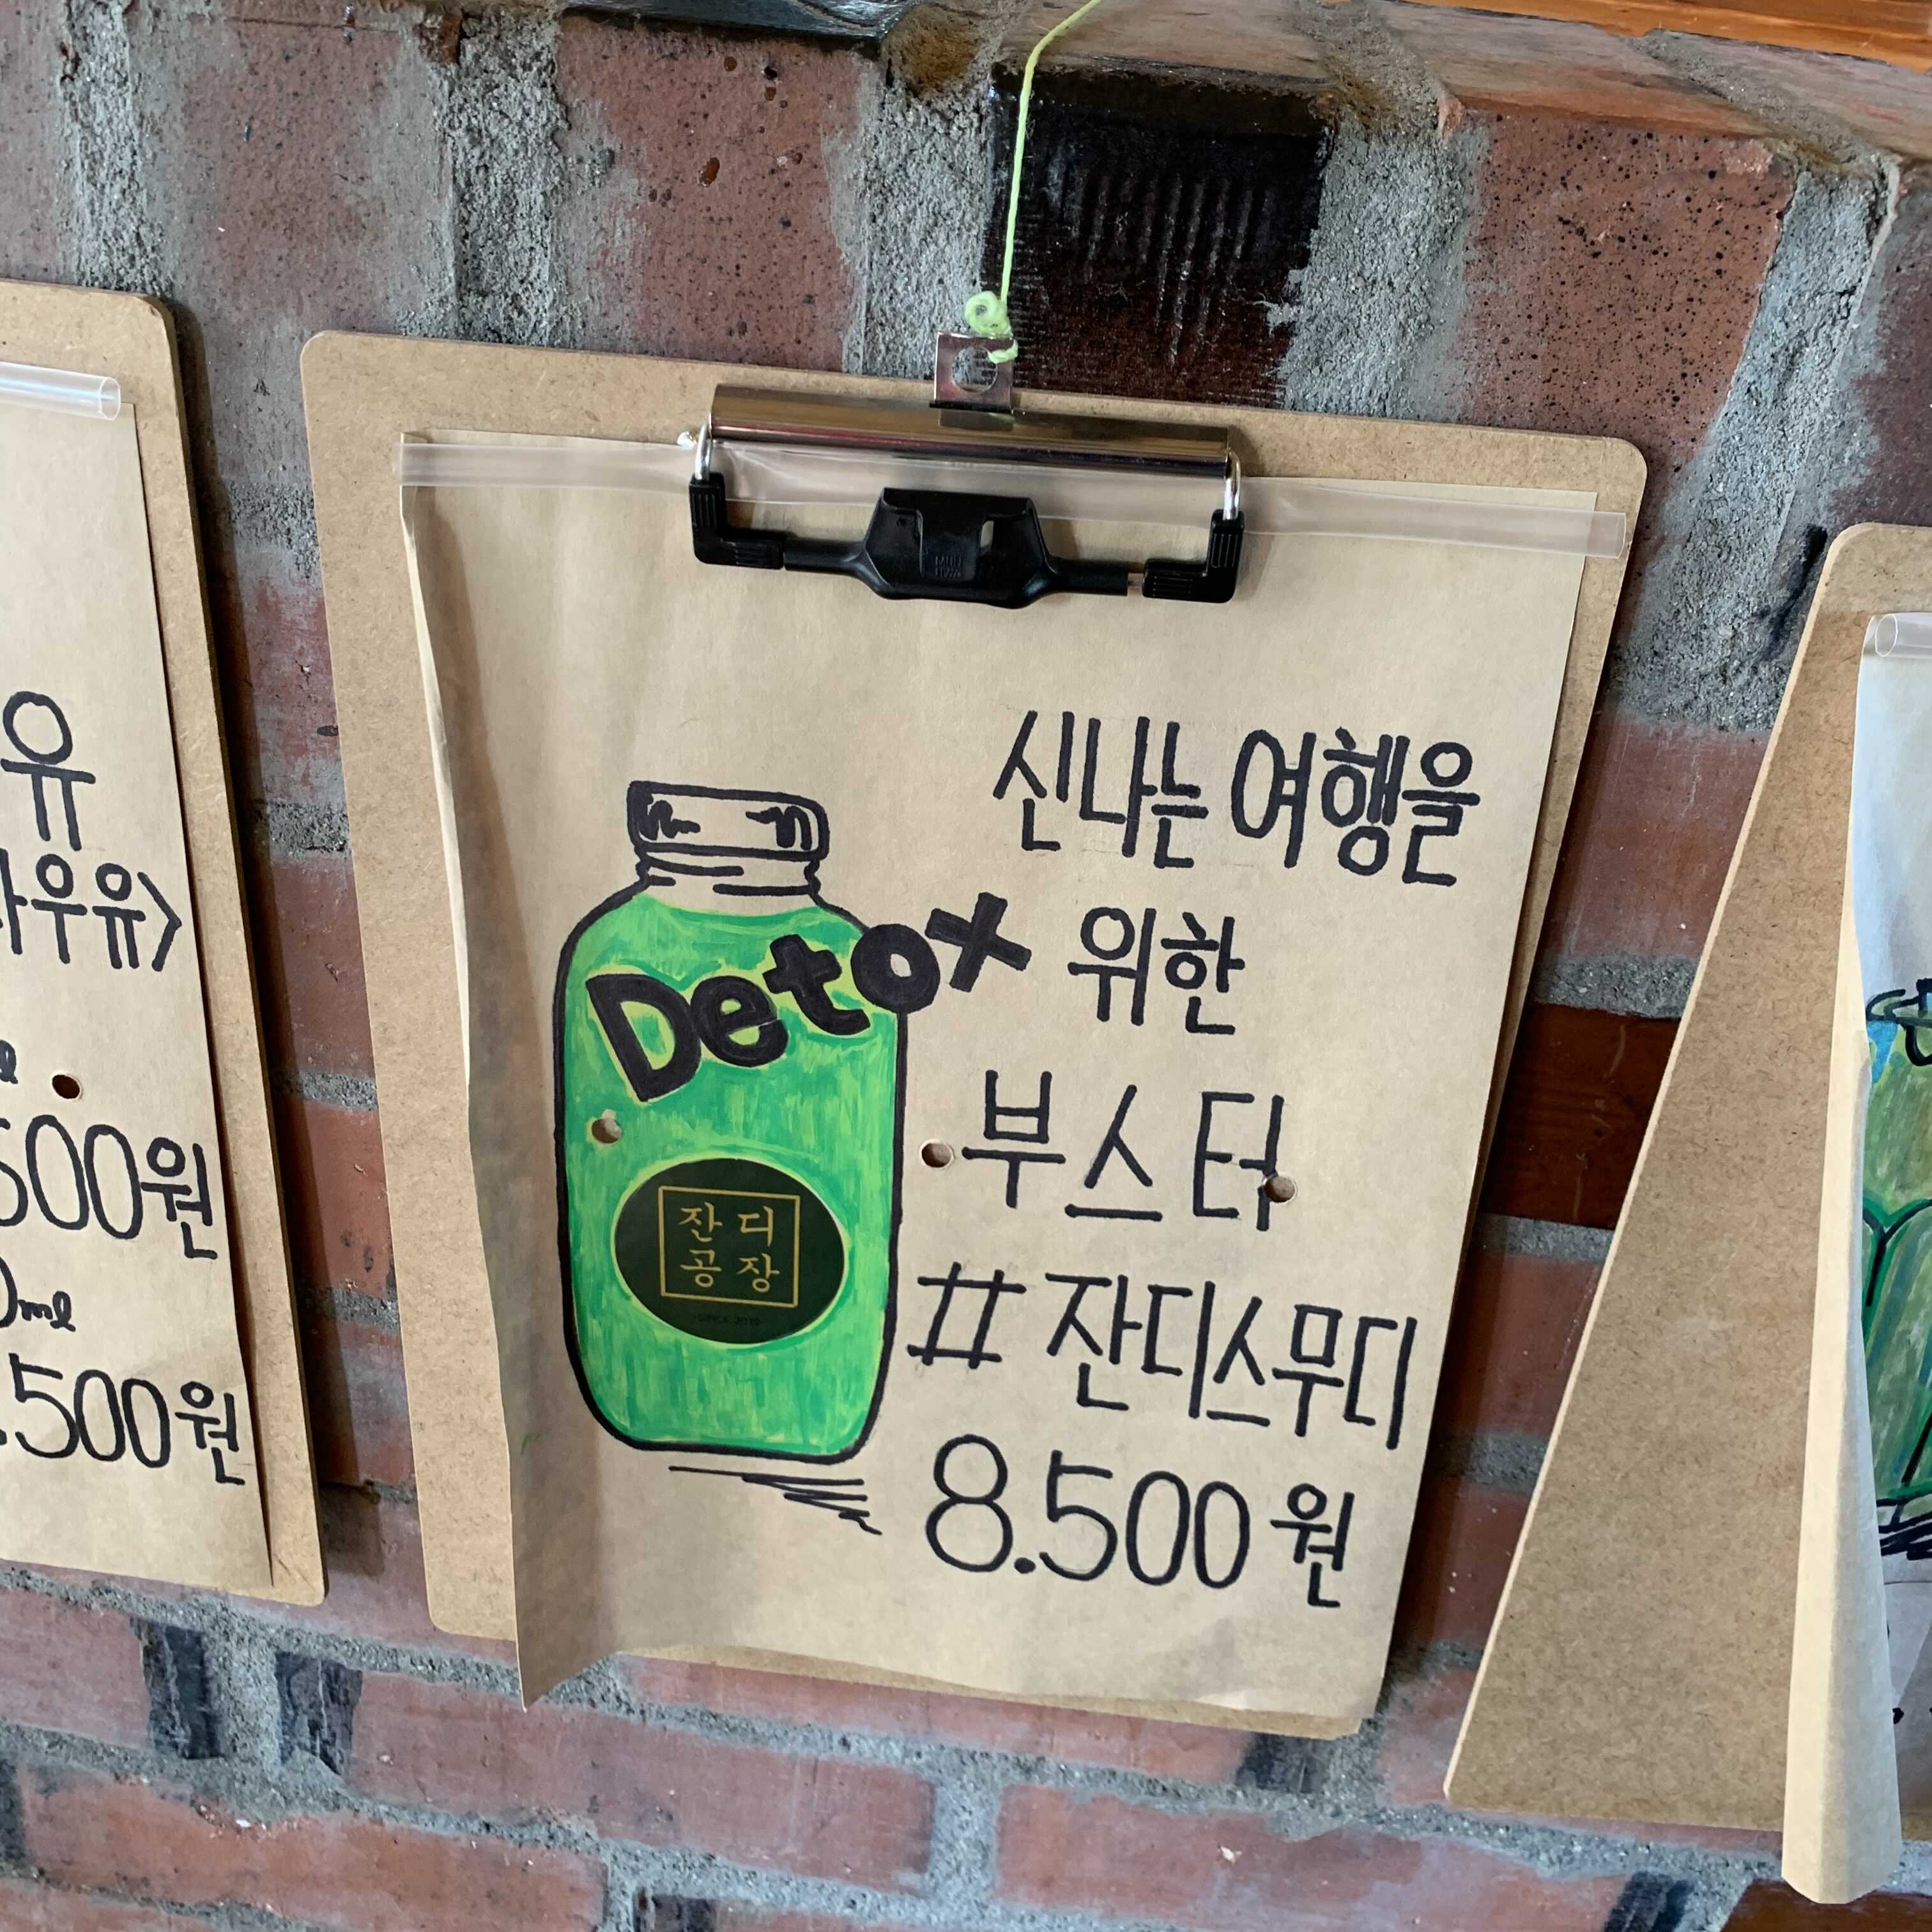 유
우유>
500원
ml
.500원
신나는 여행을
Detox 위한
부스터
잔디
공장
#잔디스무디
8.500원